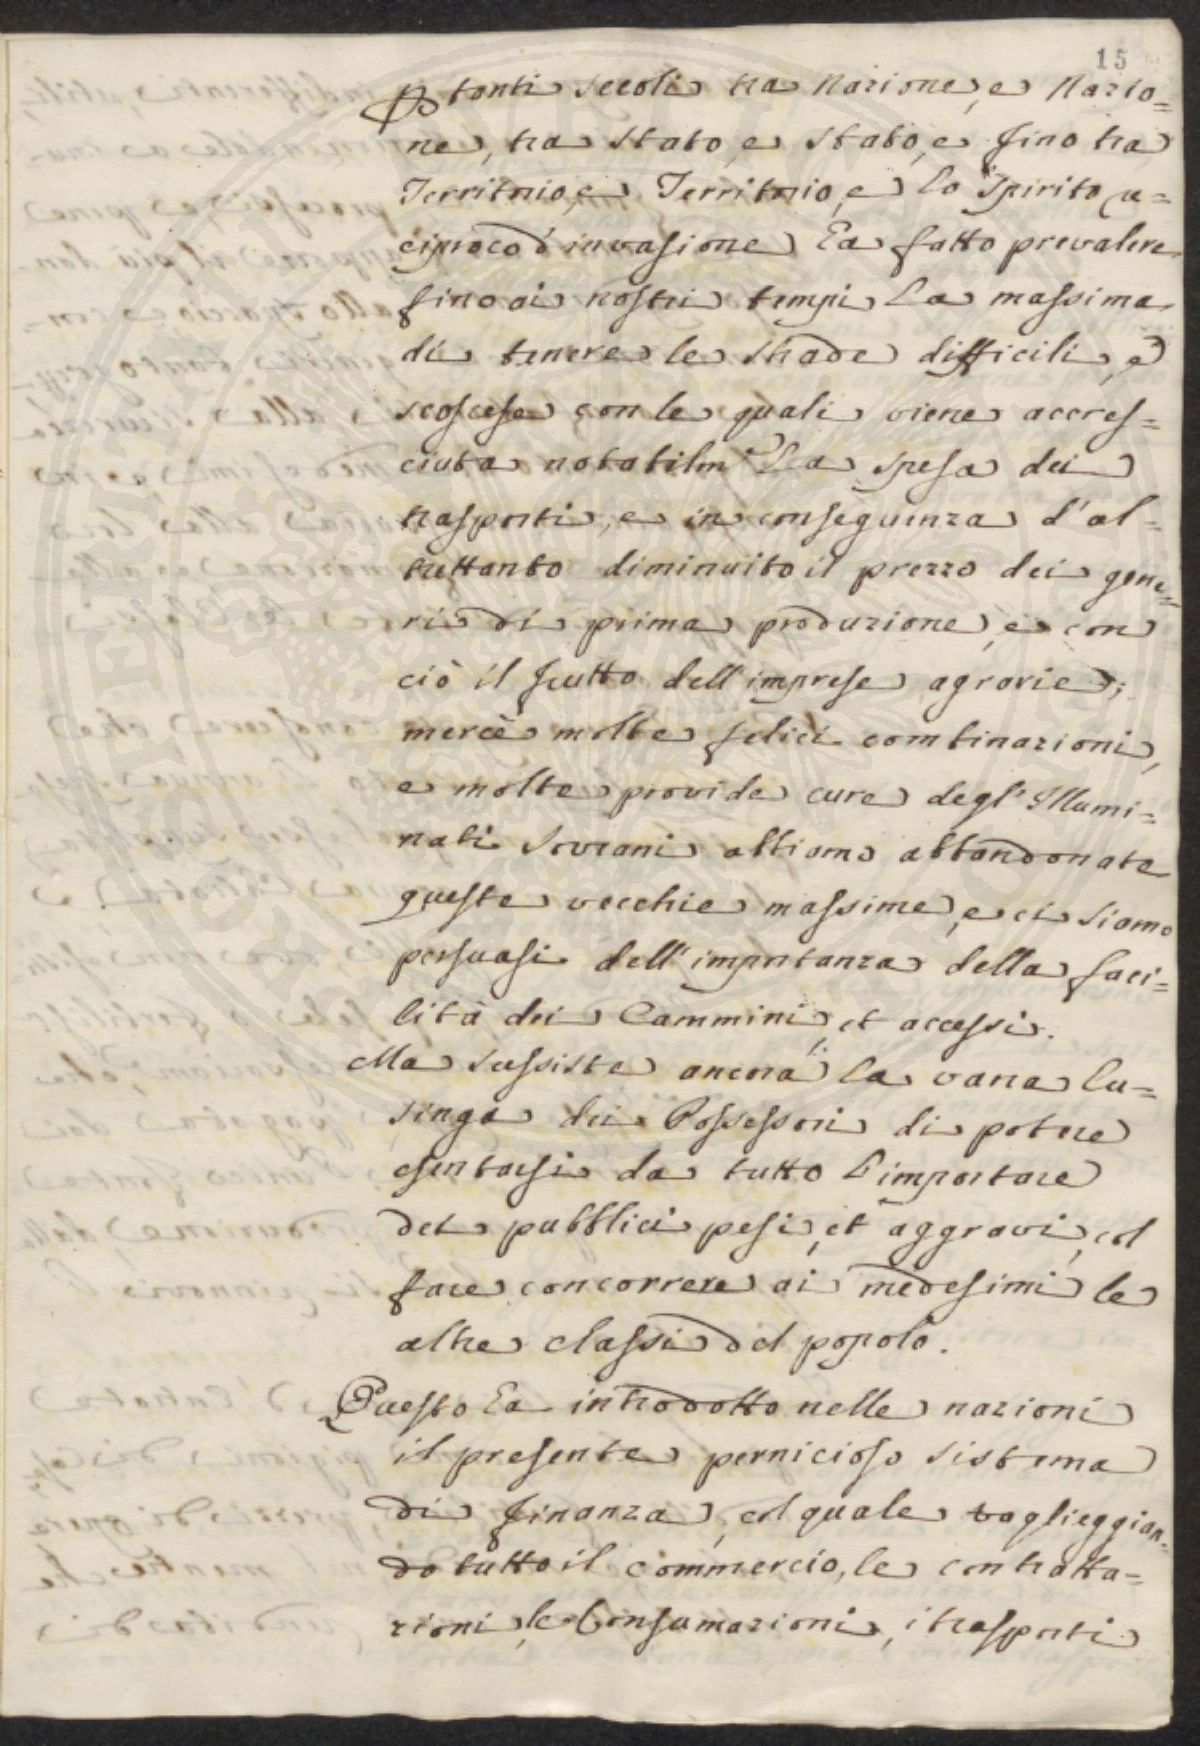 15
P tanti secoli tra Nazione, e Nazio=
ne, tra Stato, e Stato, e fino tra
Territorio, e Territorio, e lo Spirito re=
ciproco d'invasione ha fatto prevalere
fino ai nostri tempi la massima
di tenere le strade difficili, e
scoscese con le quali viene accres=
ciuta notabilm.e la spesa dei
trasporti, e in conseguenza d'al=
trettanto diminuito il prezzo dei gene=
ri di prima produzione, e con
ciò il frutto dell'imprese agrarie;
mercè molte felici combinazioni,
e molte provide cure degl'Illumi=
nati Sovrani abbiamo abbandonate
queste vecchie massime, e ci siamo
persuasi dell'importanza della faci=
lità dei Cammini, et accessi.
Ma sussiste ancora la vana lu=
singa dei Possessori di potere
esentarsi da tutto l'importare
dei pubblici pesi, et aggravi, col
fare concorrere ai medesimi le
altre classi del popolo.
Questo ha introdotto nelle nazioni
il presente pernicioso sistema
di finanza, col quale taglieggian=
do tutto il commercio, le contratta=
zioni, le Consumazioni, i trasporti